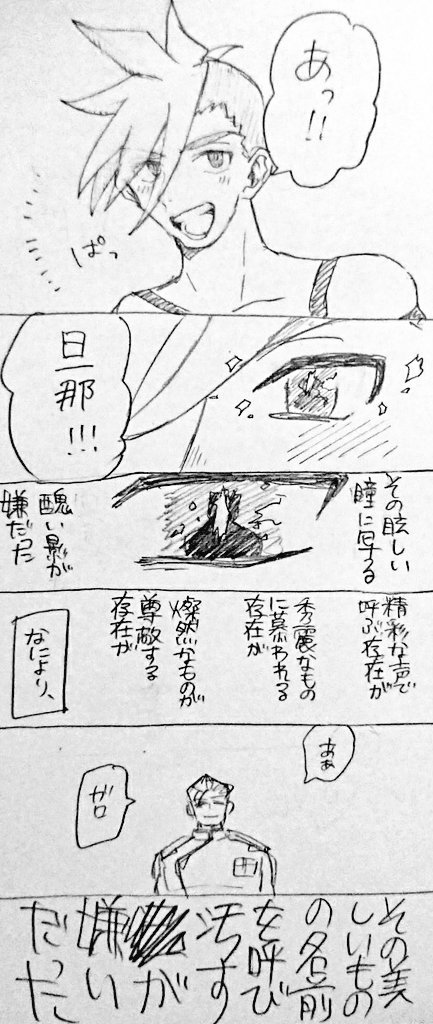 あっ!!
ぱっ
旦那!!!
その眩しい
瞳に写する
醜い影が
嫌だった
精彩な声で
呼ぶ存在が
秀麗なもの
に慕われる
存在が
燦然かものが
尊敬する
存在が
なにより、
あぁ
ガロ
その美
しいもの
の名前
を呼び
汚す
が
嫌い
だった